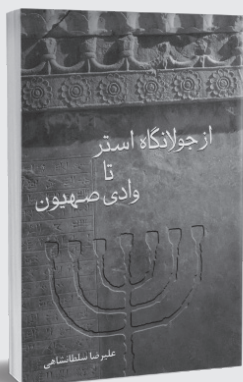 از جولانگاه استر
تا
وادی صهیون
علیرضا سلطانشاهی